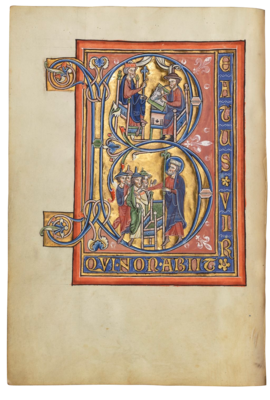 B
EATUS VIR
QVI NON ABIIT